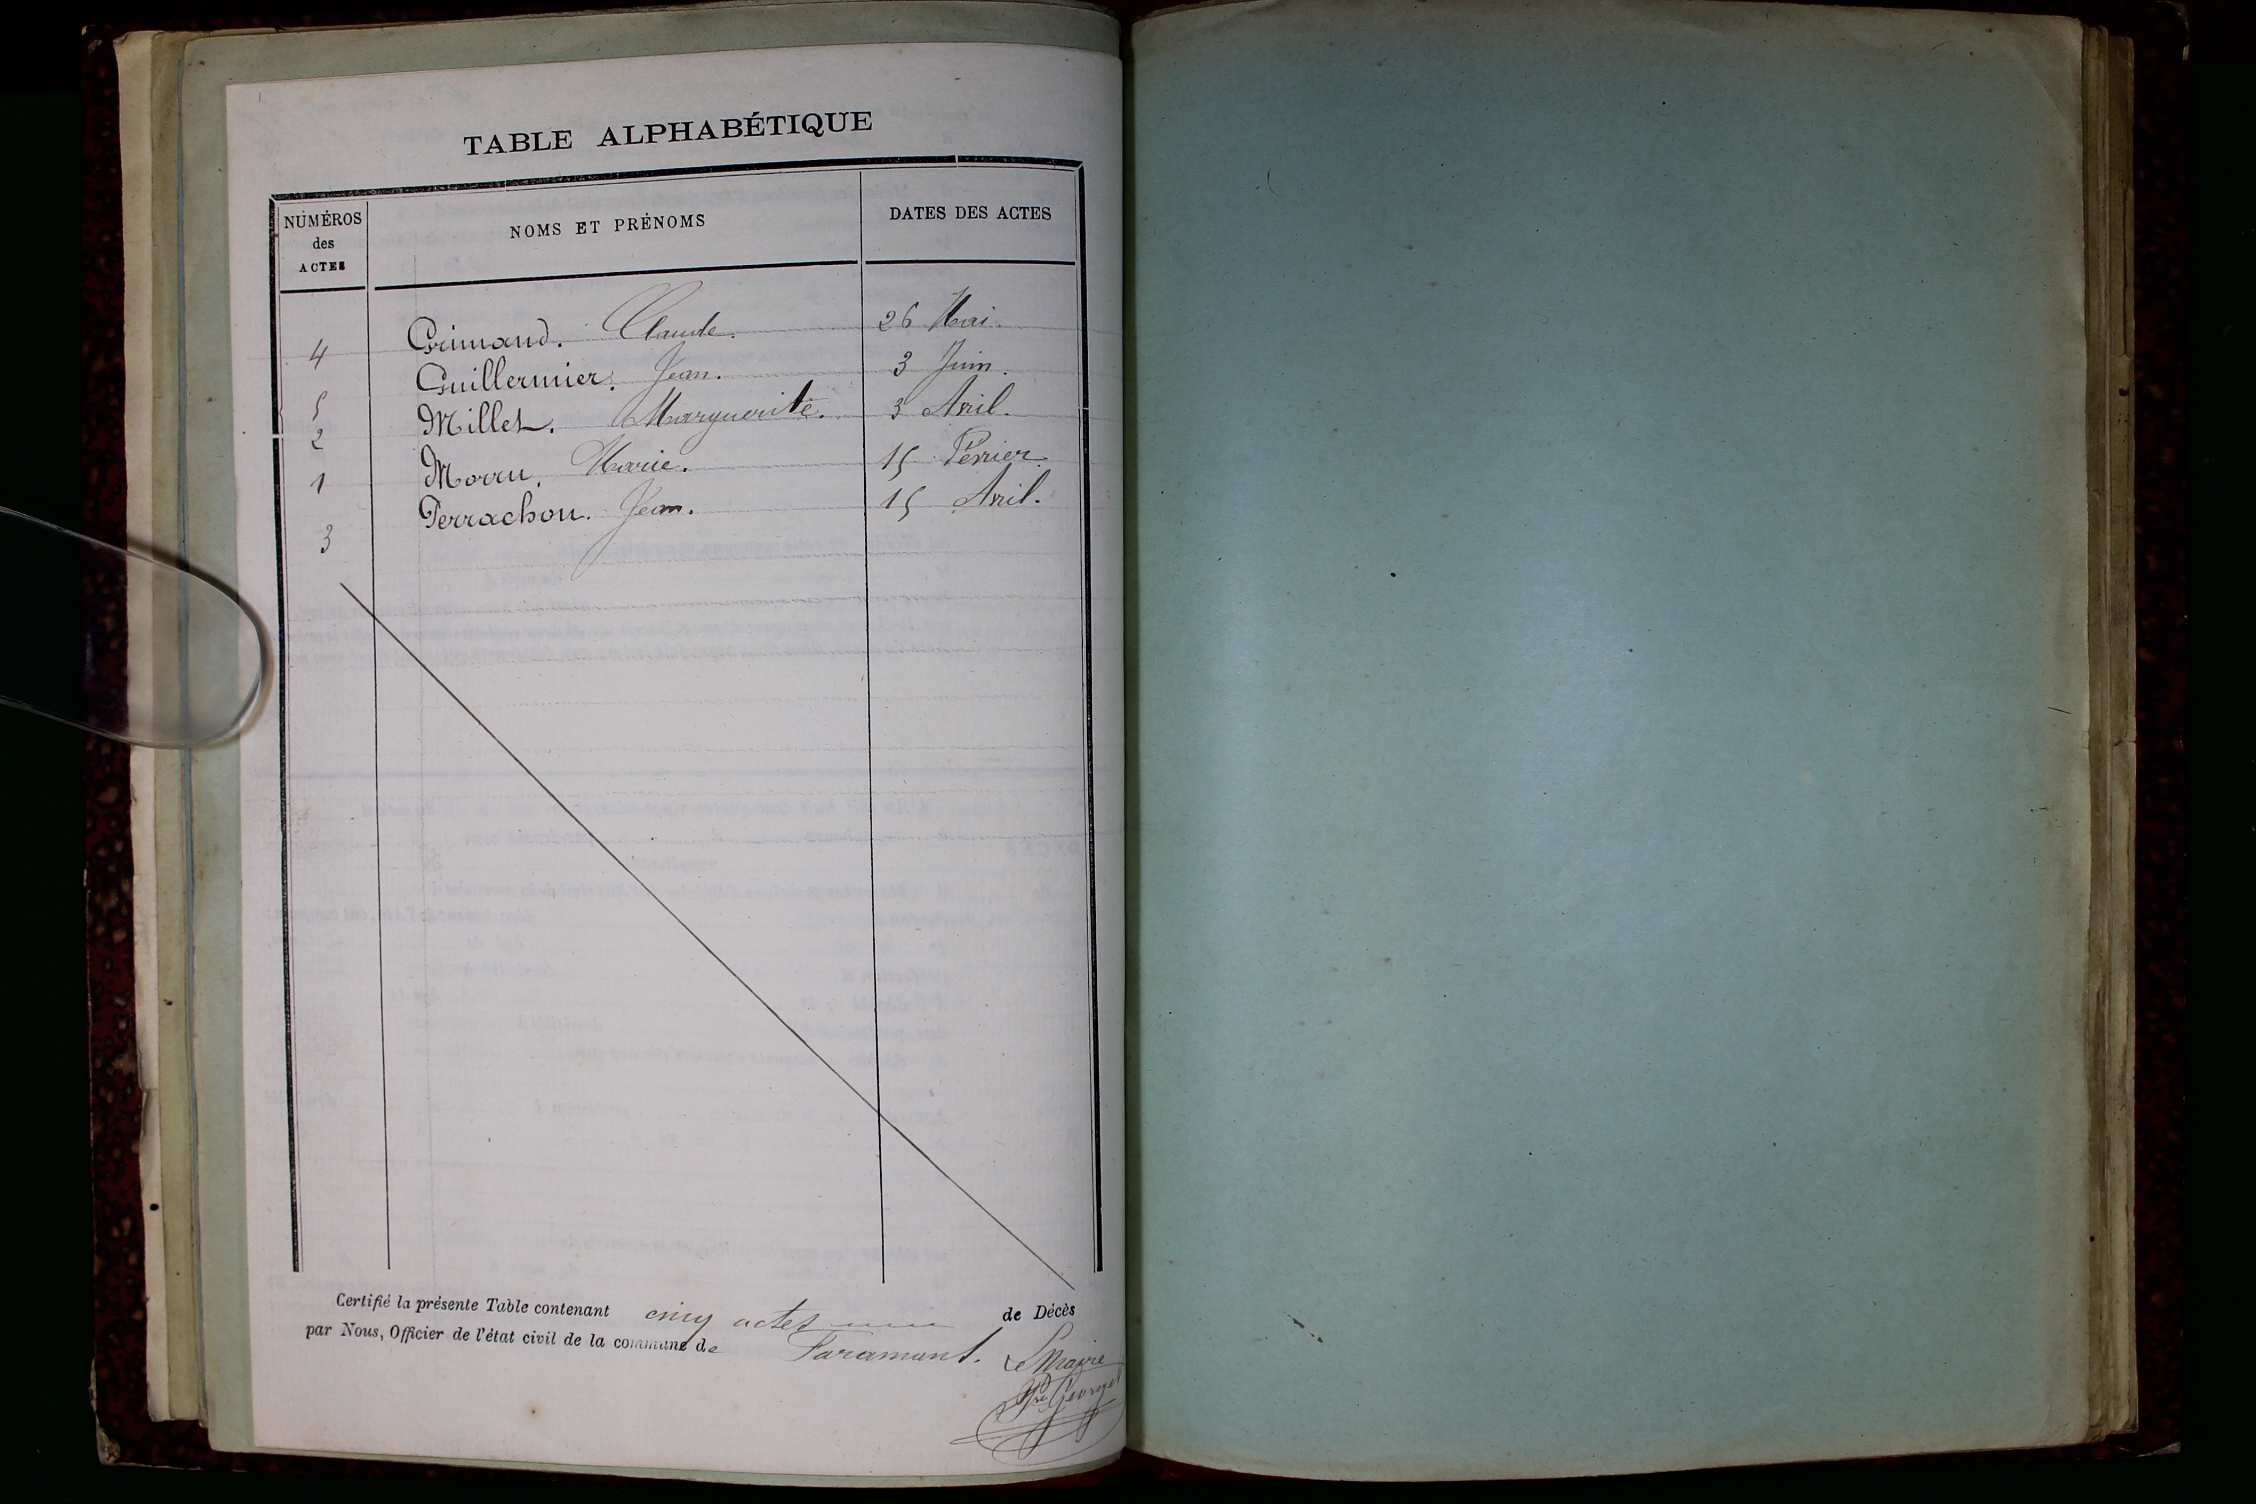 TABLE ALPHABÉTIQUE
NUMÉROS
des
ACTES
NOMS ET PRÉNOMS
DATES DES ACTES
4 Grimaud. Claude. 26 Mai.
5 Guillermier. Jean. 3 Juin.
2 Millet. Marguerite. 3 Avril.
1 Morau. Marie. 15 Février.
3 Perrachon. Jean. 15 Avril.
Certifié la présente Table contenant cinq actes de Décès
par Nous, Officier de l'état civil de la commune de Faramans.
Le Maire